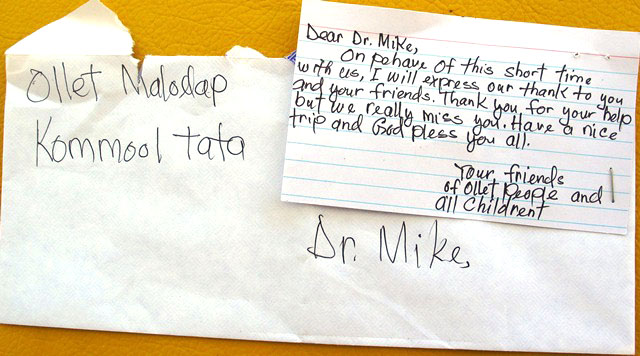 Ollet Malodap
Kommool tata
Dear Dr. Mike,
On pehave of this short time
with us, I will express our thank to you
and your friends. Thank you for your help
but we really miss you. Have a nice
trip and God pless you all.
Your friends
of Ollet people and
all Childrent
Dr. Mike,